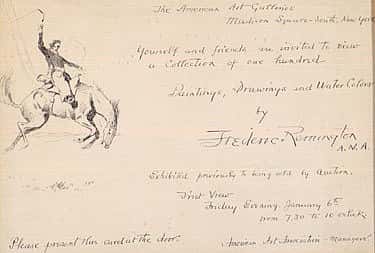 The American Art Galleries
Madison Square-South, New York
Yourself and friends are invited to view
a Collection of one hundred
Paintings, Drawings and Water Colors
by
Frederic Remington
A.N.A.
Exhibited previously to being sold by Auction.
First View
Friday Evening, January 6th
from 7.30 to 10 o'clock
Please present this card at the door.
American Art Association - Managers